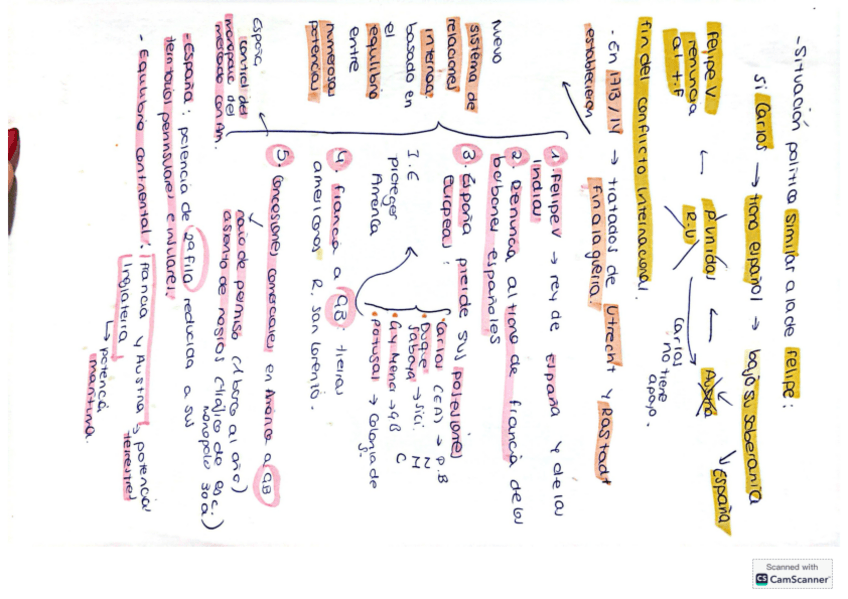 - Situación política similar a la de Felipe:
si Carlos → trono español → bajo su soberanía
↓ España
Austria
P. Unidas
R.U
Felipe V
renuncia
al t.F
Carlos
no tiene
apoyo.
fin del conflicto internacional.
- En 1713/14 → tratados de Utrecht y Rastadt
establecieron
fin a la guerra.
Nuevo
sistema de
relaciones
internac.
basado en
el
equilibrio
entre
numerosas
potencias
1. Felipe V → rey de España y de las
Indias
2. Renuncia al trono de Francia de los
borbones españoles
3. España pierde sus posesiones
Europeas:
• Carlos (EA) → P.B
N
I
C
• Duque Saboya → Sici.
• G y Menor → GB
• Portugal → Colonia de
S.
I.E
proteger
América
4. Francia a GB: tierras
americanas R. San Lorenzo.
5. Concesiones comerciales en América a GB
navío de permiso (1 barco al año)
asiento de negros (tráfico de esc.
monopolio 30a)
España
control del
monopolio del
mercado con Am.
- España: potencia de 2ª fila reducida a sus
territorios peninsulares e insulares.
- Equilibrio continental: Francia y Austria → potencias
terrestres
Inglaterra
↳ potencia
marítima.
Scanned with
CS CamScanner